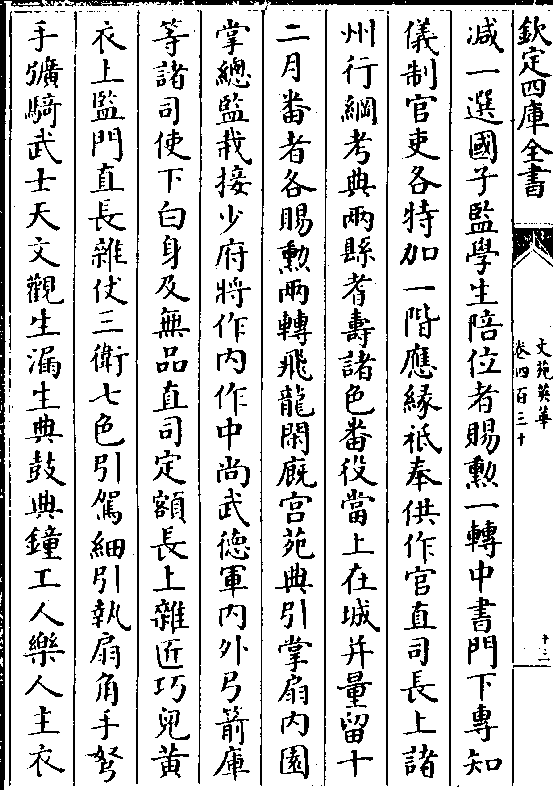 欽定四庫全書
文苑英華
卷四百三十
十二
減一選國子監學生陪位者賜勲一轉中書門下專知
儀制官吏各特加一階應緣祗奉供作官直司長上諸
州行綱考典兩縣耆壽諸色畨役當上在城并量留十
二月畨者各賜勲兩轉飛龍閑廐宫苑典引掌扇内園
掌總監栽接少府將作内作中尚武德軍内外弓箭庫
等諸司使下白身及無品直司定額長上雜匠巧兒黄
衣上監門直長雜仗三衛七色引駕細引執扇角手弩
手彍騎武士天文觀生漏生典鼓典鐘工人樂人主衣